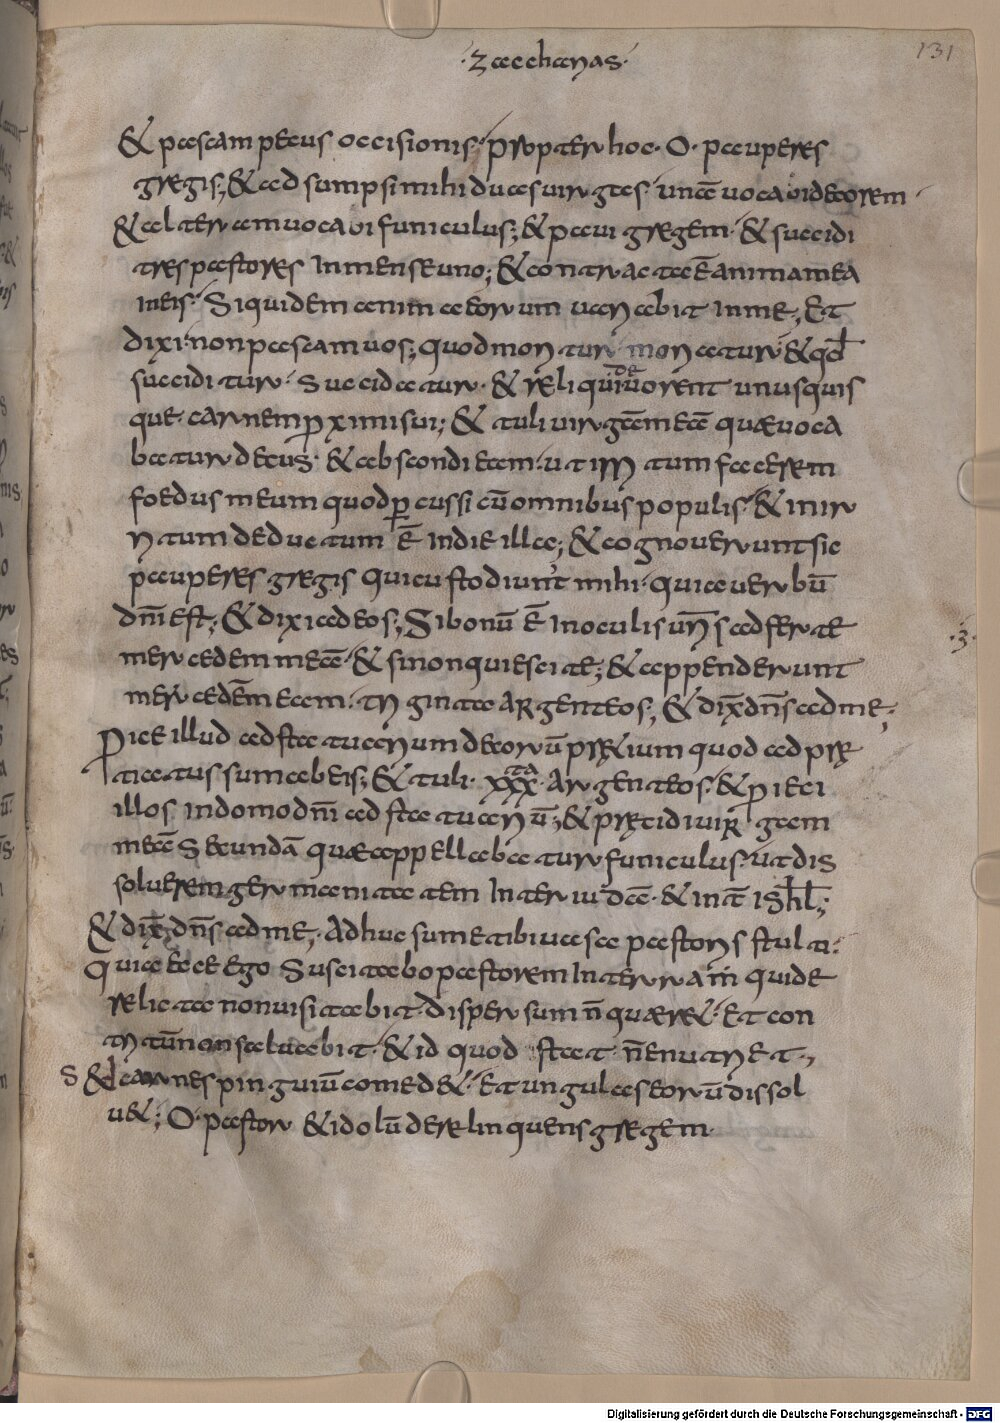 ·Zacharias·
131
& pascam pecus occisionis· propter hoc· O· pauperes
gregis; & ad sumpsi mihi duas uirgas· unā uocaui decorem·
& alteram uocaui funiculus; & paui gregem· & succidi
tres pastores In mense uno; & contracta ē anima mea
In eis· Siquidem anima eorum uariabit In me; Et
dixi· non pascam uos; quod moritur moriatur & qđ
succiditur· Succidatur· & reliqui deuorent unusquis
que· carnem ꝓximi sui; & tuli uirgā meā quæ uoca
batur decus· & abscondi eam· ut irritum facerem
foedus meum quod ꝑcussi cū omnibus populis· & in ir
ritum deductum ē In die illa; & cognouerunt sic
pauperes gregis qui custodiunt mihi· quia uerbū
dn̄i est; & dixi ad eos; Si bonū ē In oculis ur̄is adferte
mercedem meā· & si non quiescite; & appenderunt
mercedēm meam· triginta argenteos; & dix̄ dn̄s ad me·;
·3·
Proice illud ad statuarium decorū prętium quod ad prę
tiatus sum ab eis; & tuli· xxx ta· argenteos· & proieci
illos In domo dn̄i ad statuariū; & pręcidi uirgam
meā Secundā quæ appellabatur funiculus· ut dis
soluerem germanitatem Inter iudā· & int̄ isrhl̄;
& dix̄ dn̄s ad me; Adhuc sume tibi uasa pastoris stulti·
quia ecce ego Suscitabo pastorem In terram̄ qui de
relicta non uisitabit· dispersum n̄ quær&· Et con
tritū non sanabit· & id quod stat· n̄ enutriet·,
S & carnes pinguiū comed&· Et ungulas eorū dissol
u&; O· pastor & idolū derelinquens gregem·
Digitalisierung gefördert durch die Deutsche Forschungsgemeinschaft - DFG